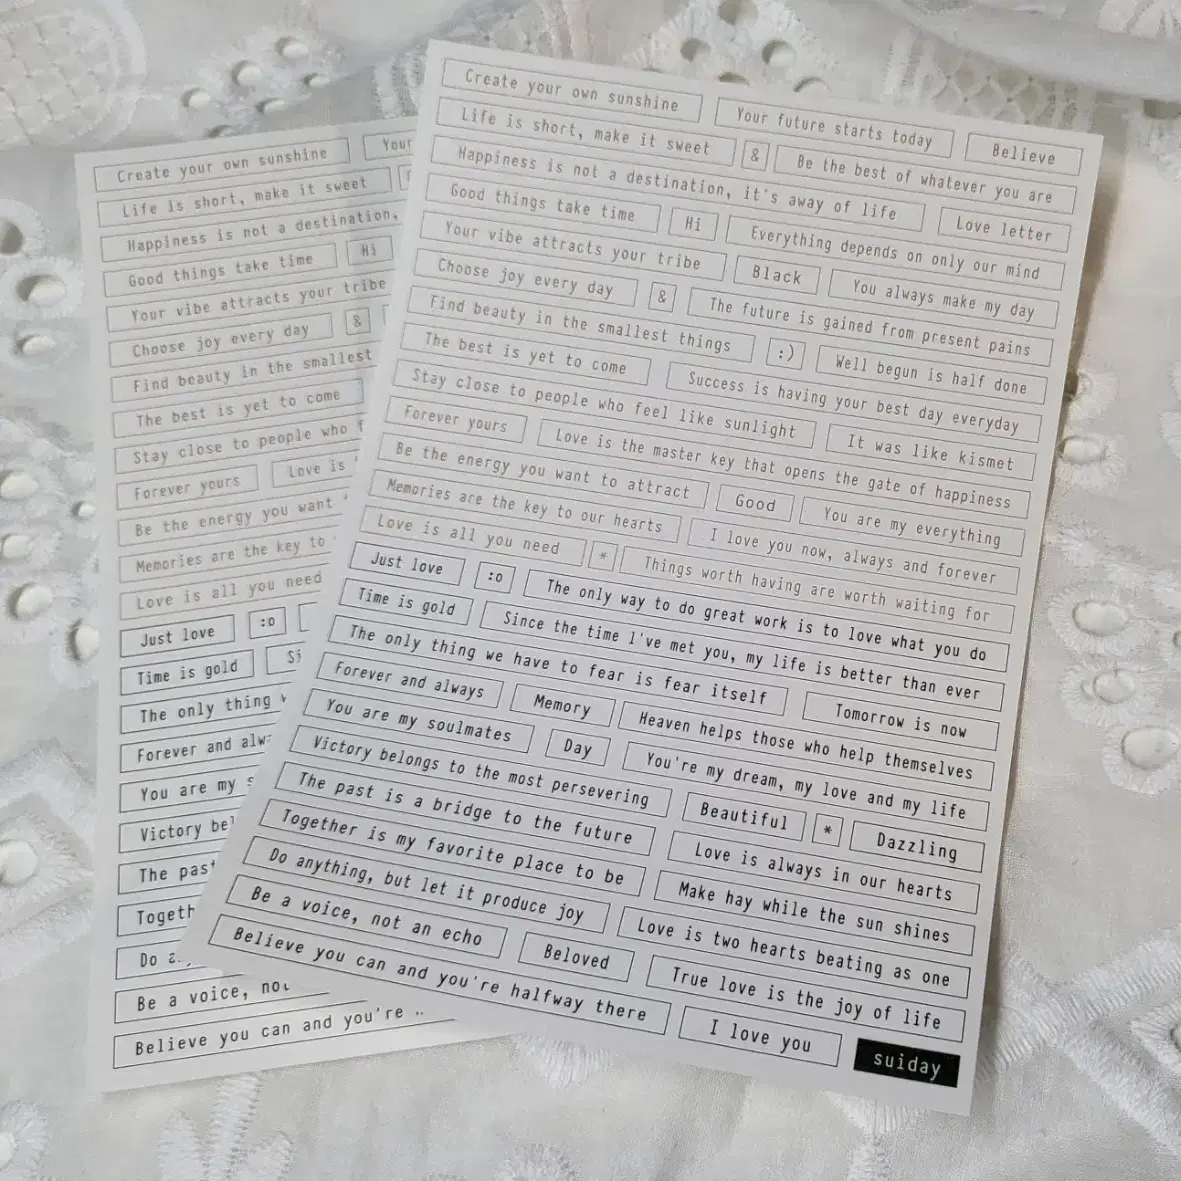 Create your own sunshine Your future starts today Believe
Life is short, make it sweet & Be the best of whatever you are
Happiness is not a destination, it's away of life Love letter
Good things take time Hi Everything depends on only our mind
Your vibe attracts your tribe Black You always make my day
Choose joy every day & The future is gained from present pains
Find beauty in the smallest things :) Well begun is half done
The best is yet to come Success is having your best day everyday
Stay close to people who feel like sunlight It was like kismet
Forever yours Love is the master key that opens the gate of happiness
Be the energy you want to attract Good You are my everything
Memories are the key to our hearts I love you now, always and forever
Love is all you need * Things worth having are worth waiting for
Just love :o The only way to do great work is to love what you do
Time is gold Since the time I've met you, my life is better than ever
The only thing we have to fear is fear itself Tomorrow is now
Forever and always Memory Heaven helps those who help themselves
You are my soulmates Day You're my dream, my love and my life
Victory belongs to the most persevering Beautiful * Dazzling
The past is a bridge to the future Love is always in our hearts
Together is my favorite place to be Make hay while the sun shines
Do anything, but let it produce joy Love is two hearts beating as one
Be a voice, not an echo Beloved True love is the joy of life
Believe you can and you're halfway there I love you suiday
Create your own sunshine Your
Life is short, make it sweet
Happiness is not a destination,
Good things take time Hi
Your vibe attracts your tribe
Choose joy every day &
Find beauty in the smallest
The best is yet to come
Stay close to people who
Forever yours Love is
Be the energy you want
Memories are the key to
Love is all you need
Just love :o
Time is gold Si
The only thing
Forever and
You are my
Victory
The past
Do
Be a voice,
Believe you can and you're